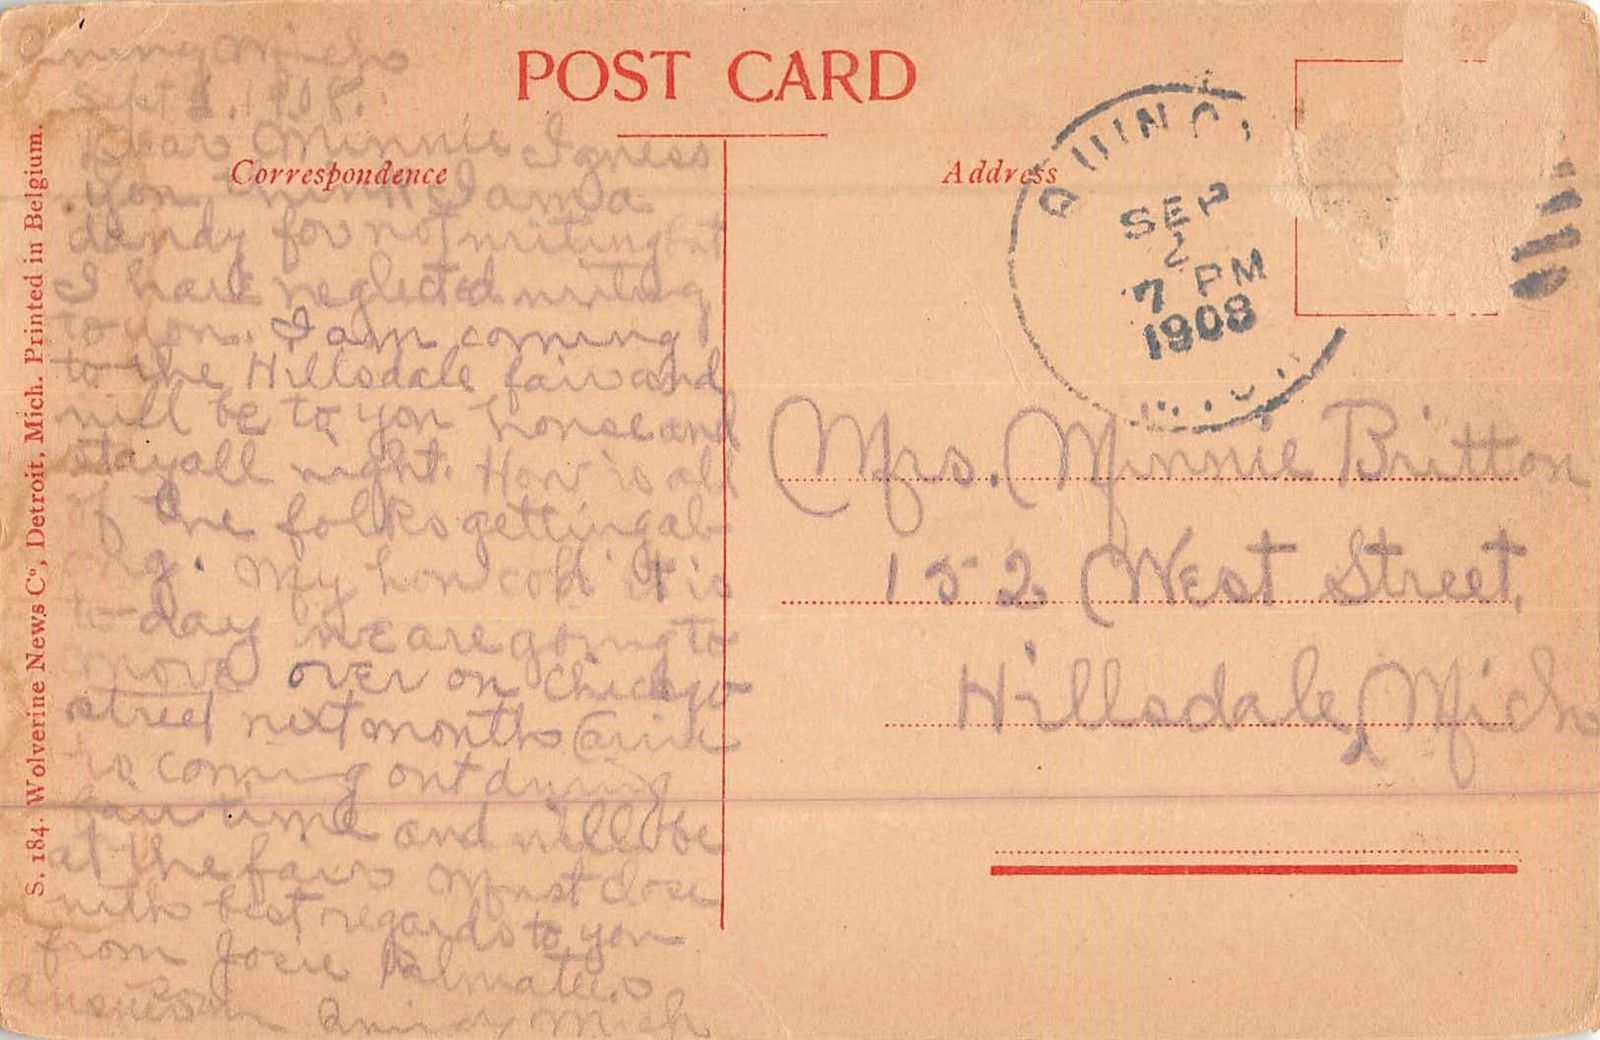 POST CARD
Correspondence
Address
S. 184. Wolverine News Co, Detroit, Mich. Printed in Belgium.
Quincy Mich
Sept 1. 1908.
Dear Minnie I guess
you think I am a
dandy for not writing but
I have neglected writing
to you. I am coming
to the Hillsdale fair and
will be to you house and
stay all night. How is all
of the folks getting al
ong. My how cold it is
to-day we are going to
move over on Chicago
street next month Carrie
is coming out during
fair time and will be
at the fair Must close
with best regards to you
from Josie Palmateer
answer Quincy Mich
QUINCY
SEP
2
7 PM
1908
MICH
Mrs. Minnie Britton
152 West Street,
Hillsdale, Mich